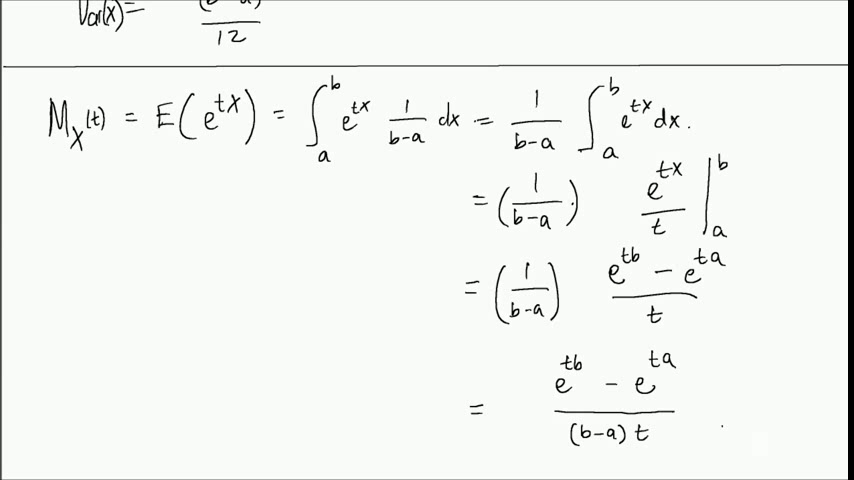 Var(X)= (b-a) / 12
M_X(t) = E(e^{tX}) = ∫_a^b e^{tx} 1/(b-a) dx = 1/(b-a) ∫_a^b e^{tx} dx.
= (1/(b-a)) e^{tx}/t |_a^b
= (1/(b-a)) (e^{tb} - e^{ta})/t
= (e^{tb} - e^{ta})/((b-a) t)